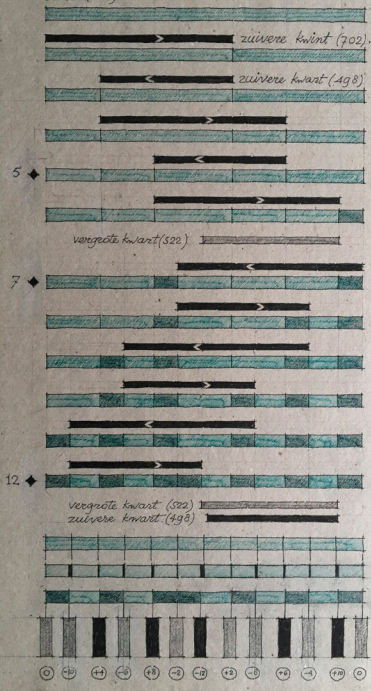 zuivere kwint (702).
zuivere kwart (498)
5
vergrote kwart (522)
7
12
vergrote kwart (522)
zuivere kwart (498)
0 -10 +4 -6 +8 -2 -12 +2 -8 +6 -4 +10 0